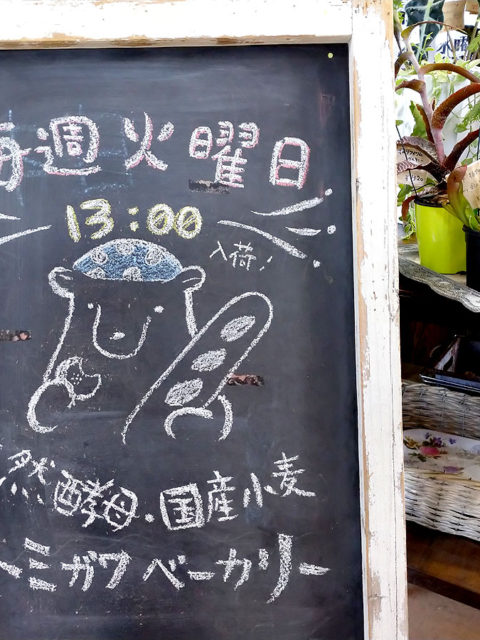 毎週火曜日
13:00
入荷！
然酵母・国産小麦
ミガワベーカリー